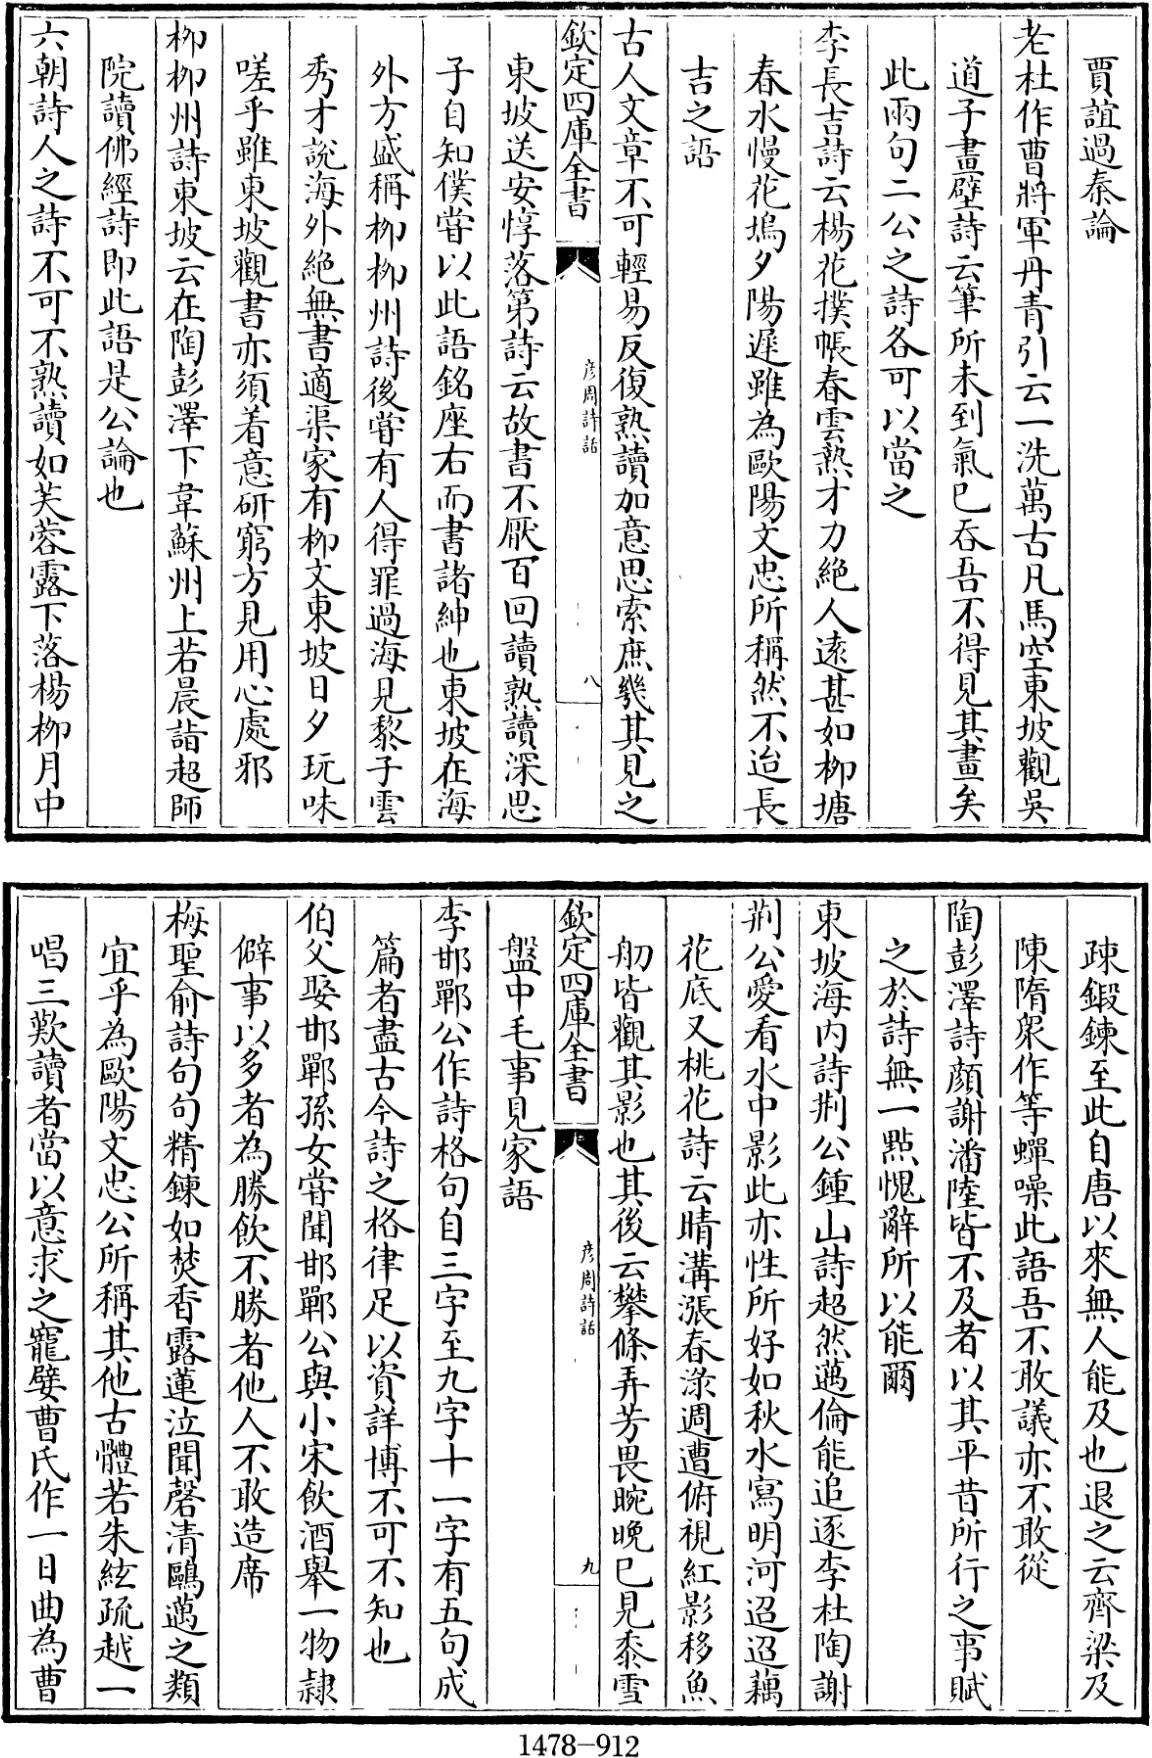 賈誼過秦論
老杜作曹將軍丹青引云一洗萬古凡馬空東坡觀吳
道子畫壁詩云筆所未到氣已吞吾不得見其畫矣
此兩句二公之詩各可以當之
李長吉詩云楊花撲帳春雲熱才力絶人遠甚如柳塘
春水慢花塢夕陽遲雖為歐陽文忠所稱然不迨長
吉之語
古人文章不可輕易反復熟讀加意思索庶幾其見之
欽定四庫全書
彦周詩話
八
東坡送安惇落第詩云故書不厭百回讀熟讀深思
子自知僕嘗以此語銘座右而書諸紳也東坡在海
外方盛稱柳柳州詩後嘗有人得罪過海見黎子雲
秀才說海外絶無書適渠家有柳文東坡日夕玩味
嗟乎雖東坡觀書亦須着意研窮方見用心處邪
柳柳州詩東坡云在陶彭澤下韋蘇州上若晨詣超師
院讀佛經詩即此語是公論也
六朝詩人之詩不可不熟讀如芙蓉露下落楊柳月中
疎鍛鍊至此自唐以來無人能及也退之云齊梁及
陳隋衆作等蟬噪此語吾不敢議亦不敢從
陶彭澤詩顔謝潘陸皆不及者以其平昔所行之事賦
之於詩無一點愧辭所以能爾
東坡海内詩荆公鍾山詩超然邁倫能追逐李杜陶謝
荆公愛看水中影此亦性所好如秋水寫明河迢迢藕
花底又桃花詩云晴溝漲春渌週遭俯視紅影移魚
舠皆觀其影也其後云攀條弄芳畏晼晚已見黍雪
欽定四庫全書
彦周詩話
九
盤中毛事見家語
李邯鄲公作詩格句自三字至九字十一字有五句成
篇者盡古今詩之格律足以資詳博不可不知也
伯父娶邯鄲孫女嘗聞邯鄲公與小宋飲酒舉一物隷
僻事以多者為勝飲不勝者他人不敢造席
梅聖俞詩句句精鍊如焚香露蓮泣聞磬清鷗邁之類
宜乎為歐陽文忠公所稱其他古體若朱絃疏越一
唱三歎讀者當以意求之寵嬖曹氏作一日曲為曹
1478-912